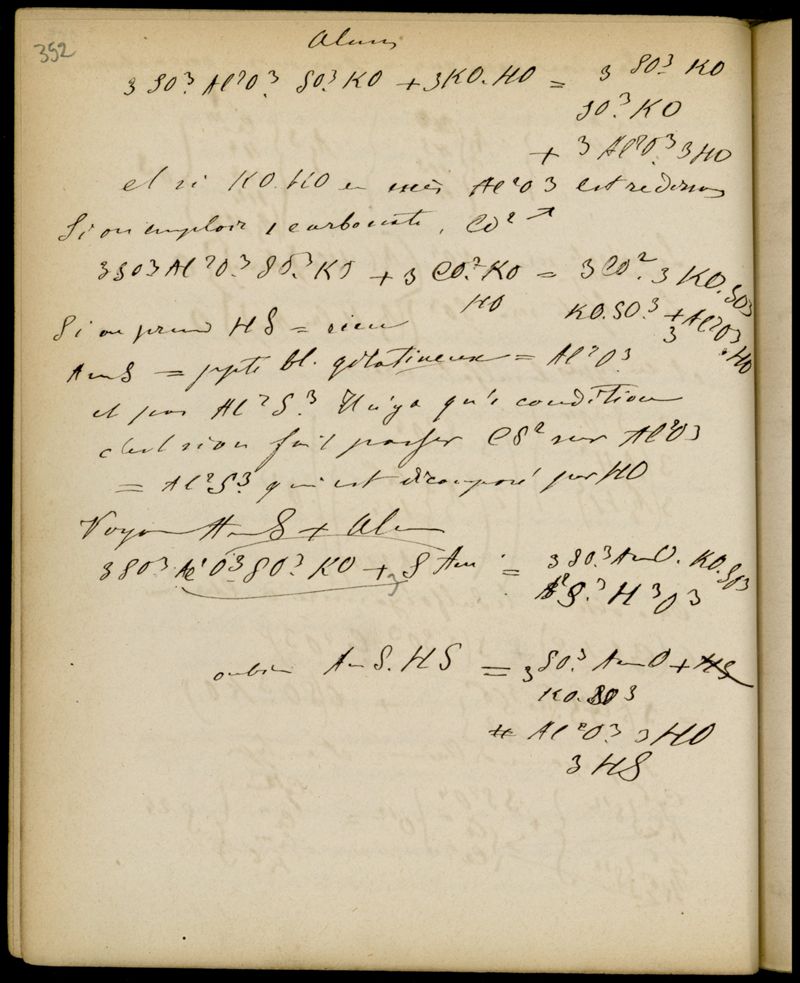 352
Aluns
3 SO³. Al²O³. SO³. KO + 3KO. HO = 3 SO³. KO
SO³. KO
+ 3 Al²O³. 3HO
et si KO. HO en excès Al²O3 est redissous
Si on emploie 1 carbonate, CO² ↗
3SO3 Al²O³. SO³. KO + 3 CO². KO = 3CO². 3 KO. SO3
HO KO. SO³. + Al²O3
3 . HO
Si on prend HS = rien
AmS = ppté bl. gélatineux = Al²O3
et pas Al²S³. Il n'y a qu'1 condition
c'est si on fait passer CS² sur Al²O3
= Al²S³. qui est décomposé par HO
Voyons AmS + Alun
3 SO3 Al²O3 SO³. KO + 3 S Am = 3 SO³. AmO. KO. SO3
Al²S.³ H3O3
ou bien AmS. HS = 3 SO³. AmO + HS
KO. SO3
+ Al²O³. 3HO
3 HS